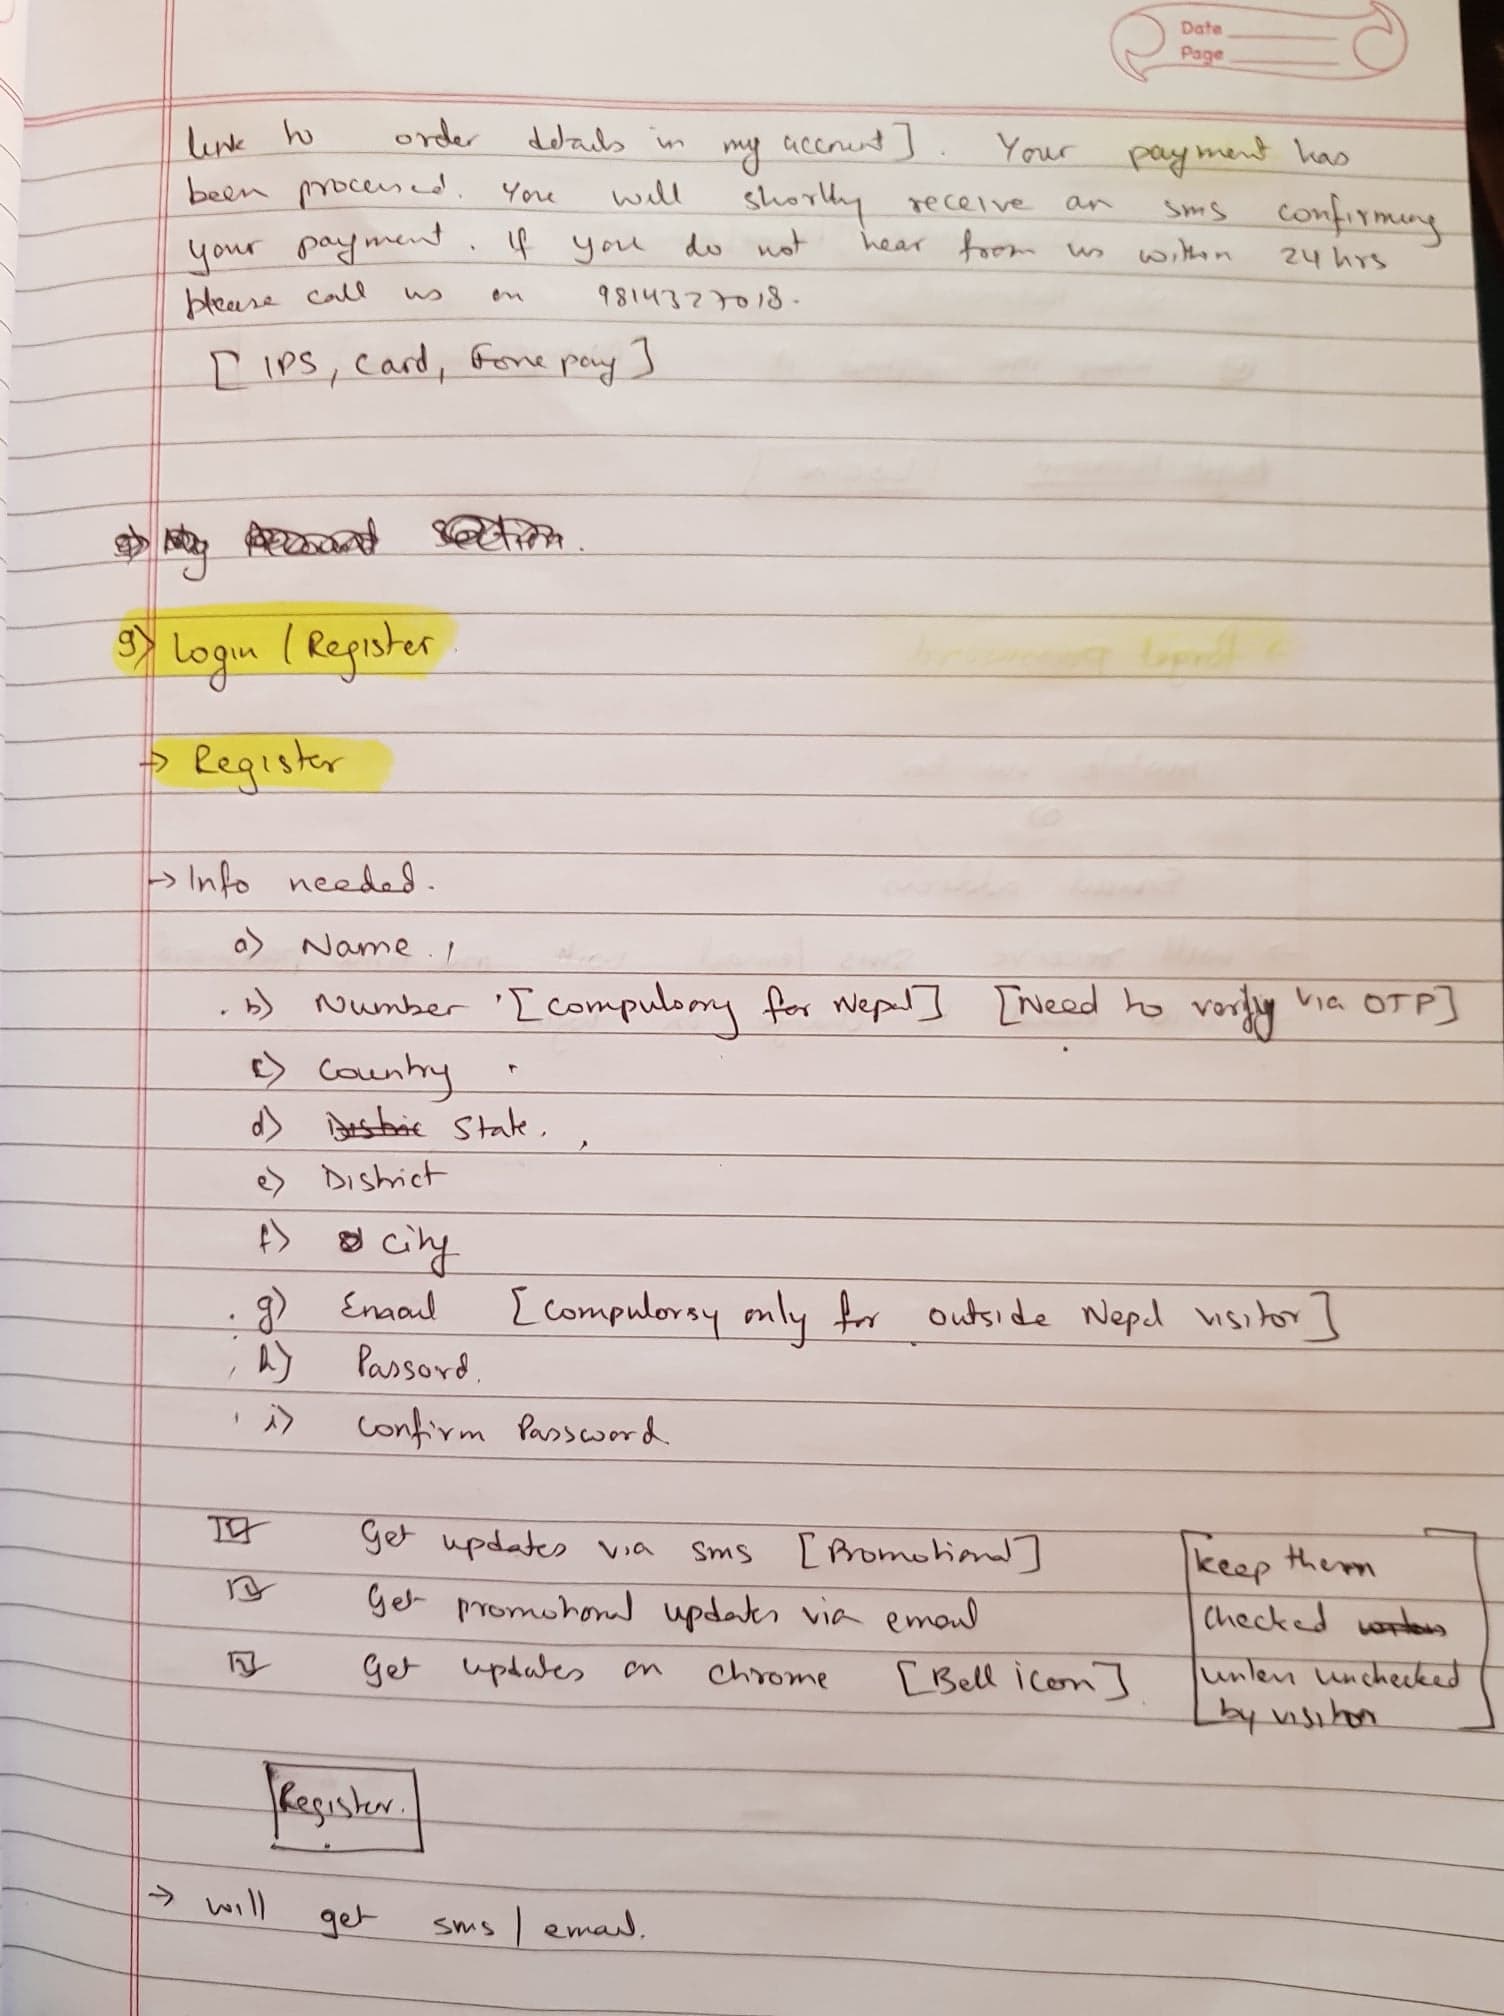 Date
Page
link to order details in my account]. Your payment has
been processed. You will shortly receive an sms confirming
your payment. If you do not hear from us within 24 hrs
please call us on 9814327018.
[IPS, Card, Fone pay]
g) My Account Section.
g) Login / Register
→ Register
→ Info needed.
a) Name.
b) Number [compulsory for Nepal] [Need to verify via OTP]
c) Country
d) Distric State.
e) District
f) city
g) Email [compulorsy only for outside Nepal visitor]
h) Passord.
i) Confirm Password
Get updates via sms [Promotional] [keep them
Get promotional updates via email checked
Get updates on chrome [Bell icon] unless unchecked
by visitor]
Register.
→ will get sms / email.